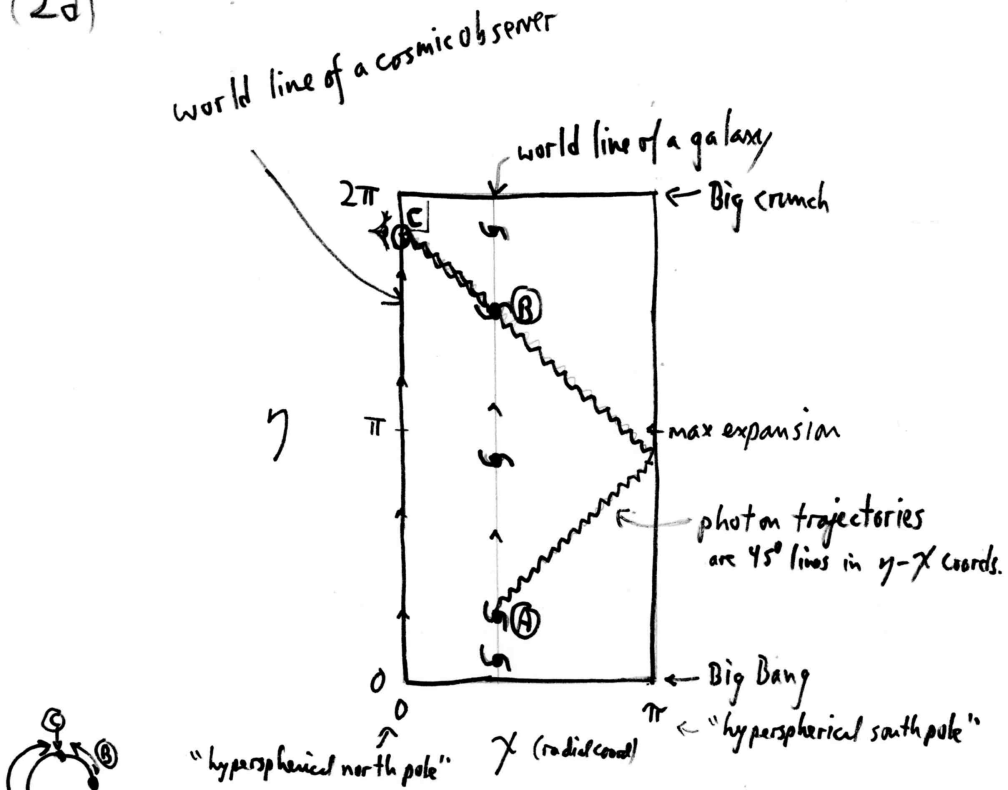 (2d)
world line of a cosmic observer
world line of a galaxy
2π
← Big crunch
C
B
η
π
← max expansion
photon trajectories
are 45° lines in η-χ coords.
A
0
← Big Bang
0
π
← "hyperspherical south pole"
"hyperspherical north pole"
χ (radial coord)
C
B